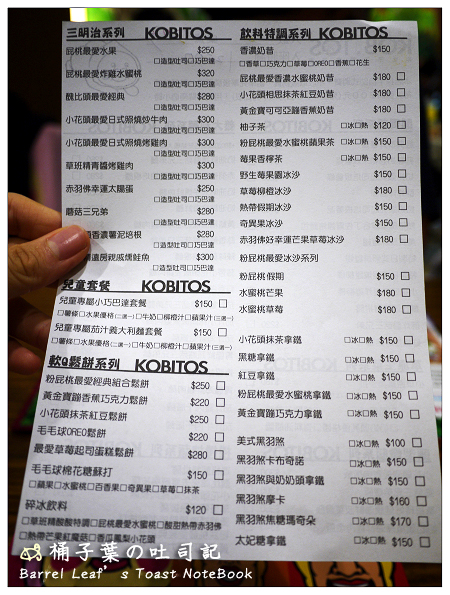 三明治系列 KOBITOS
屁桃最愛水果 $250
□造型吐司□巧巴達
屁桃最愛炸雞水蜜桃 $320
□造型吐司□巧巴達
醜比頭最愛經典 $280
□造型吐司□巧巴達
小花頭最愛日式照燒炒牛肉 $300
□造型吐司□巧巴達
小花頭最愛日式照燒烤雞肉 $300
□造型吐司□巧巴達
草班精青醬烤雞肉 $300
□造型吐司□巧巴達
赤羽佛幸運太陽蛋 $250
□造型吐司□巧巴達
蘑菇三兄弟 $280
□造型吐司□巧巴達
香濃薯泥培根 $280
□造型吐司□巧巴達
遠房親戚燻鮭魚 $300
□造型吐司□巧巴達
兒童套餐 KOBITOS
兒童專屬小巧巴達套餐 $150 □
□薯條□水果優格(二選一)□牛奶□柳橙汁□蘋果汁(三選一)
兒童專屬茄汁義大利麵套餐 $150 □
□薯條□水果優格(二選一)□牛奶□柳橙汁□蘋果汁(三選一)
軟Q鬆餅系列 KOBITOS
粉屁桃最愛經典組合鬆餅 $250 □
黃金寶蹦香蕉巧克力鬆餅 $220 □
小花頭抹茶紅豆鬆餅 $250 □
毛毛球OREO鬆餅 $220 □
最愛草莓起司蛋糕鬆餅 $280 □
毛毛球棉花糖蘇打 $150 □
□蘋果□水蜜桃□百香果□奇異果□草莓□抹茶
碎冰飲料 $120 □
□草班精酸酸特調□屁桃最愛水蜜桃□酸甜熱帶赤羽佛
□熱帶芒果紅魔菇□香瓜鳳梨小花頭
飲料特調系列 KOBITOS
香濃奶昔 $150
□香草□巧克力□草莓□OREO□香蕉□花生
屁桃最愛香濃水蜜桃奶昔 $180 □
小花頭相思抹茶紅豆奶昔 $180 □
黃金寶可可亞蹦香蕉奶昔 $180 □
柚子茶 □冰□熱 $120 □
粉屁桃最愛水蜜桃蘋果茶 □冰□熱 $150 □
莓果香檸茶 □冰□熱 $150 □
野生莓果園冰沙 $180 □
草莓柳橙冰沙 $180 □
熱帶假期冰沙 $150 □
奇異果冰沙 $150 □
赤羽佛好幸運芒果草莓冰沙 $180 □
粉屁桃最愛冰沙系列
粉屁桃假期 $150 □
水蜜桃芒果 $180 □
水蜜桃草莓 $180 □
小花頭抹茶拿鐵 □冰□熱 $150 □
黑糖拿鐵 □冰□熱 $150 □
紅豆拿鐵 □冰□熱 $150 □
粉屁桃最愛水蜜桃拿鐵 □冰□熱 $150 □
黃金寶蹦巧克力拿鐵 □冰□熱 $150 □
美式黑羽煞 □冰□熱 $100 □
黑羽煞卡布奇諾 □冰□熱 $150 □
黑羽煞與奶奶頭拿鐵 □冰□熱 $150 □
黑羽煞摩卡 □冰□熱 $160 □
黑羽煞焦糖瑪奇朵 □冰□熱 $170 □
太妃糖拿鐵 □冰□熱 $150 □
桶子葉の吐司記
Barrel Leaf's Toast NoteBook